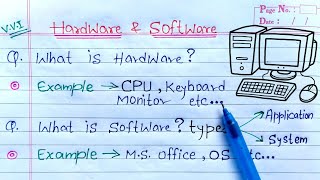 V.V.I Hardware & Software
Page No.:
Date:
Q. What is Hardware?
Example → CPU, Keyboard
Monitor etc...
Q. What is Software? types
Application
System
Example → M.S. Office, OS etc...